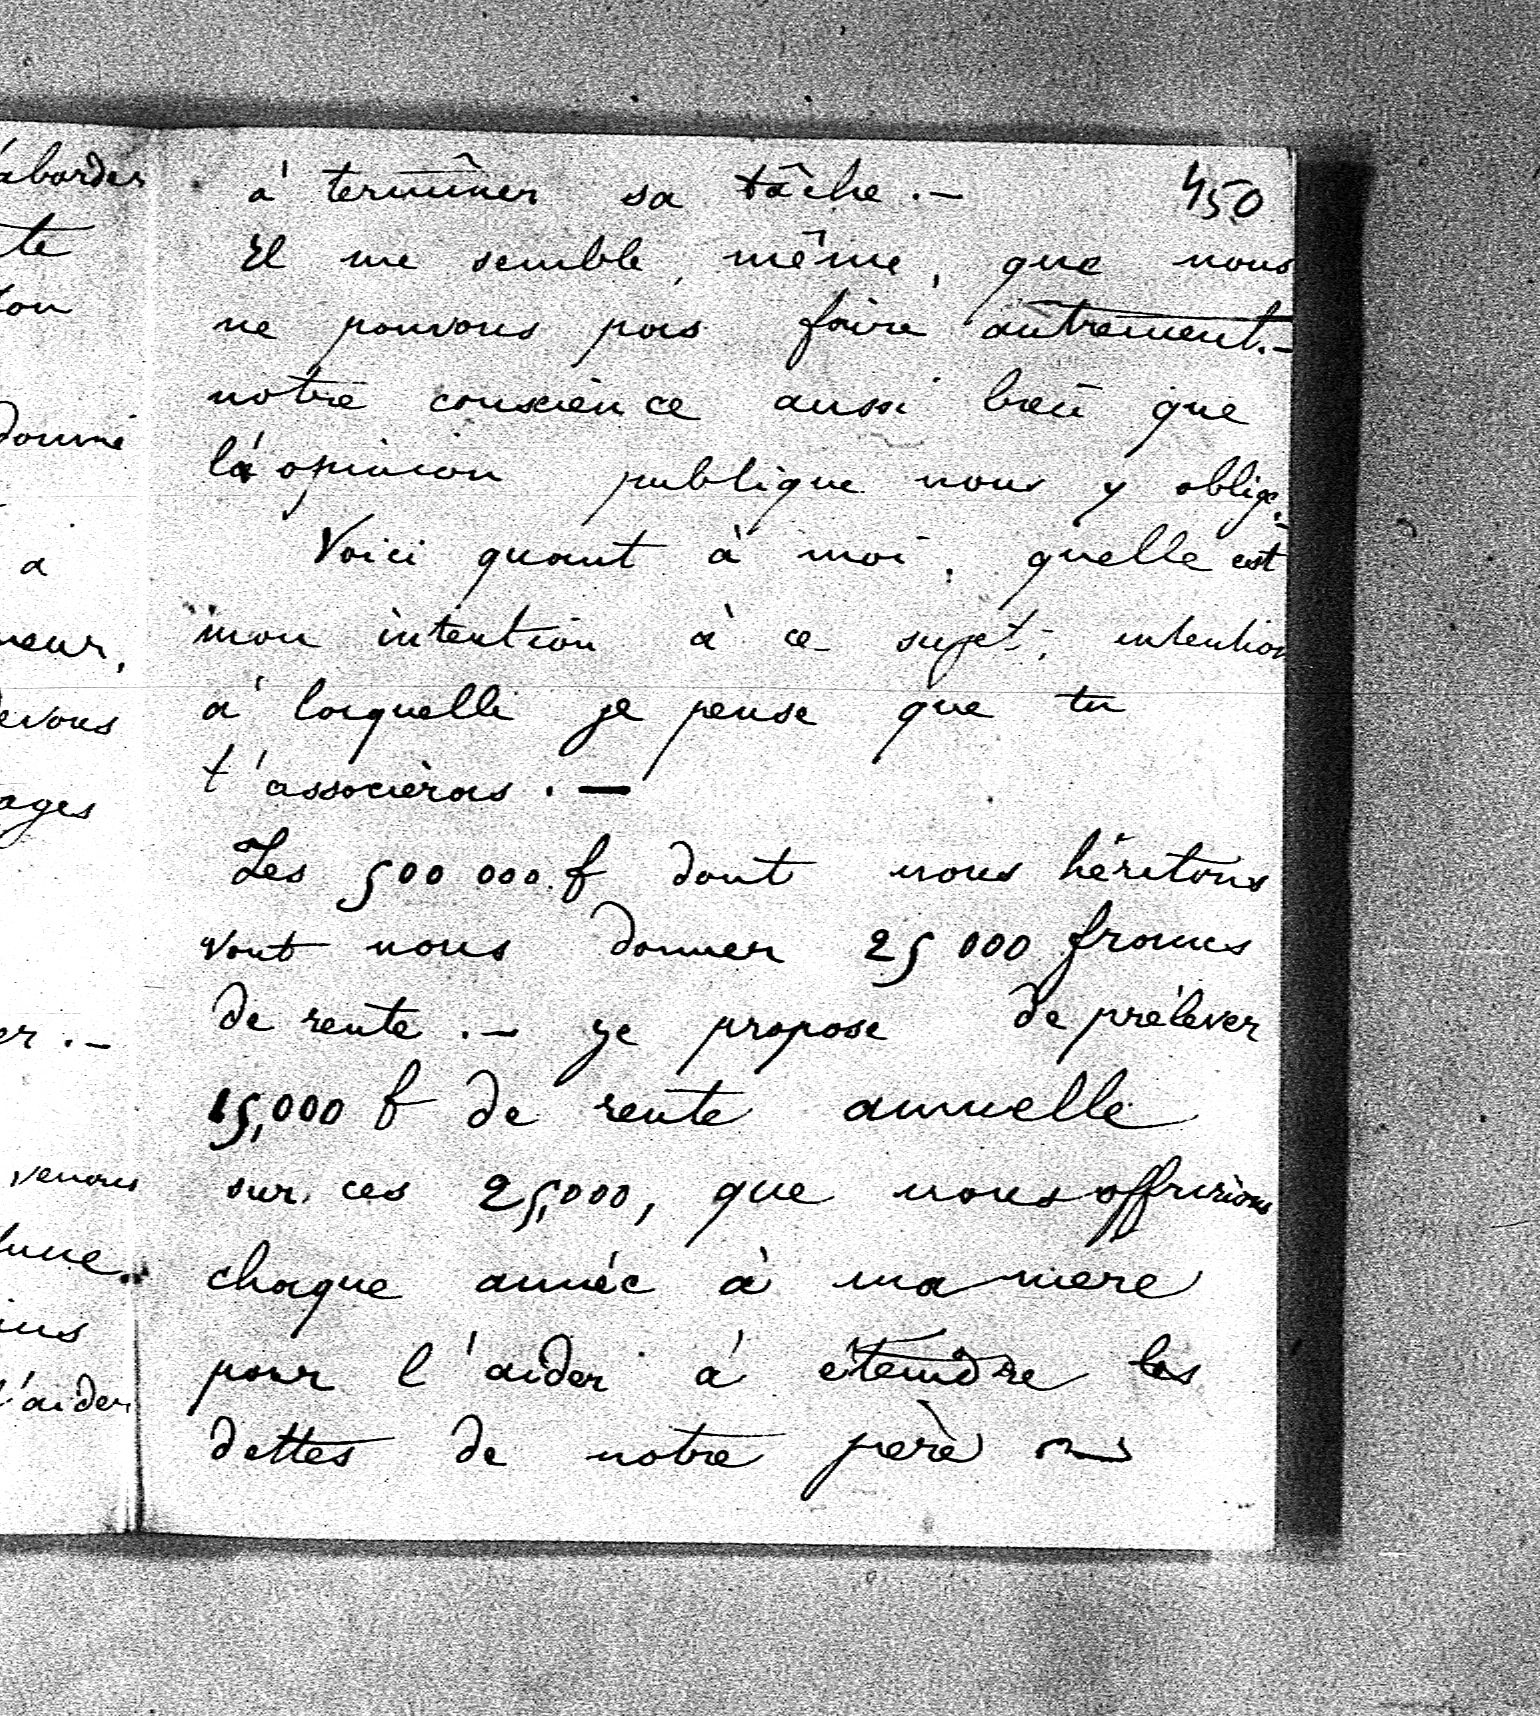 aborder
te
ton
donné
a
neur,
devons
ages
er. -
venons
lune
ins
l'aider
450
à terminer sa tâche. -
Il me semble, même, que nous
ne pouvons pas faire autrement. -
notre conscience aussi bien que
l'opinion publique nous y oblige. -
Voici quant à moi, quelle est
mon intention à ce sujet, intention
à laquelle je pense que tu
t'associeras. —
Les 500 000 f dont nous héritons
vont nous donner 25 000 francs
de rente. - je propose de prélever
15,000 f de rente annuelle
sur ces 25,000, que nous offririons
chaque année à ma mère
pour l'aider à éteindre les
dettes de notre père